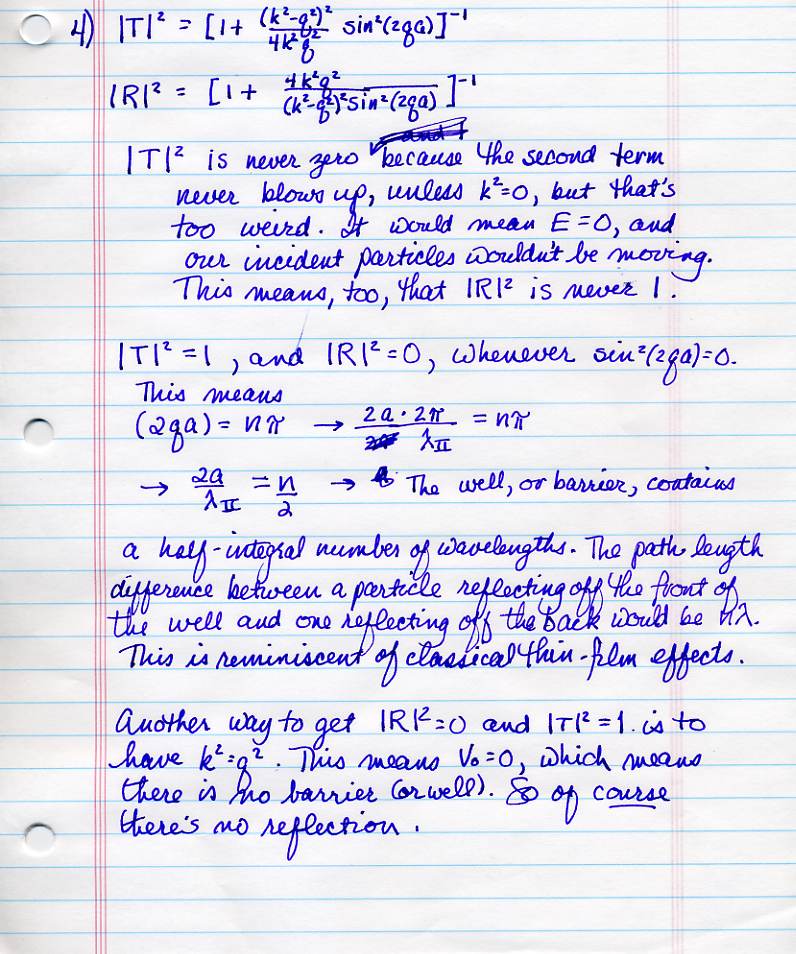 4) |T|² = [1 + (k²-q²)²/4k²q² sin²(2qa)]⁻¹
|R|² = [1 + 4k²q²/(k²-q²)²sin²(2qa)]⁻¹
|T|² is never zero because the second term
never blows up, unless k²=0, but that's
too weird. It would mean E=0, and
our incident particles wouldn't be moving.
This means, too, that |R|² is never 1.
|T|²=1, and |R|²=0, whenever sin²(2qa)=0.
This means
(2qa) = nπ → 2a·2π/λ_II = nπ
→ 2a/λ_II = n/2 → The well, or barrier, contains
a half-integral number of wavelengths. The path length
difference between a particle reflecting off the front of
the well and one reflecting off the back would be nλ.
This is reminiscent of classical thin-film effects.
Another way to get |R|²=0 and |T|²=1. is to
have k²=q². This means V₀=0, which means
there is no barrier (or well). So of course
there's no reflection.